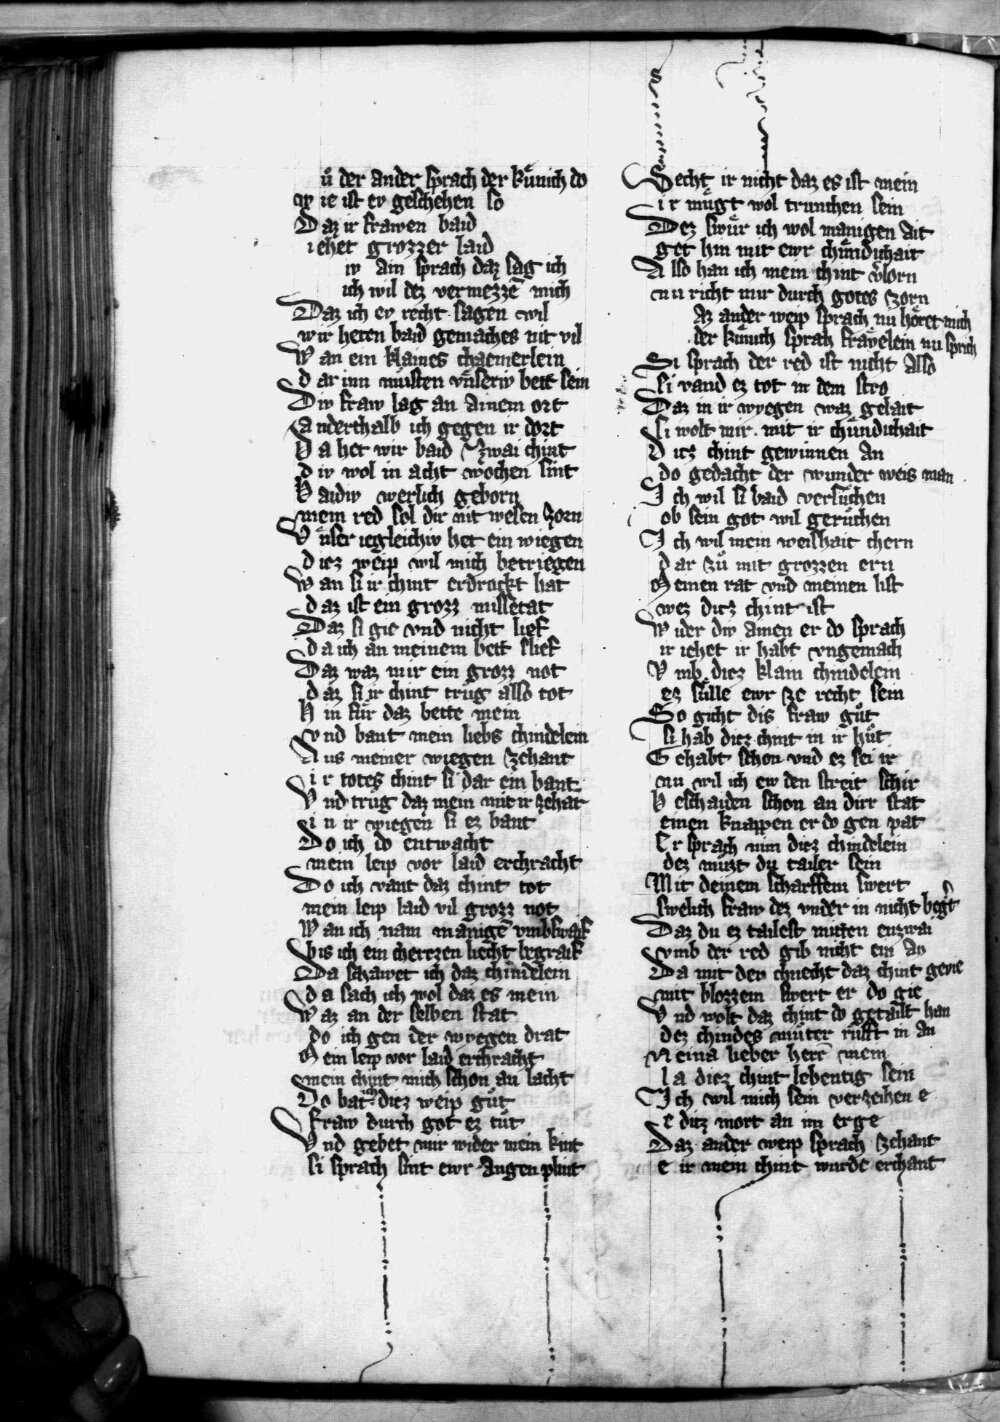 uͦ der ander sprach der kuͤnich do
w ie ist ev geschehen so
Daz ir frawen baid
iehet grozzer laid
iv ain sprach daz sag ich
ich wil dez vermezzē mich
Daz ich ev recht sagen wil
wir heten baid gemaches nit vil
W an ein klaines chaemerlein
d ar inn muͤsten vnserw bett sein
Div fraw lag an ainem ort
anderthalb ich gegen ir dort
D a het wir baid zwai chint
d iv wol in acht wochen sint
B aidiv werlich geborn
mein red sol dir nit wesen zorn
V nser iegleichiv het ein wiegen
diez weip wil mich betriegen
W an si ir chint erdruckt hat
daz ist ein grozz missetat
Daz si gie vnd nicht lief
d a ich an meinem bett slief
Daz waz mir ein grozz not
daz si ir chint truͦg also tot
H in fuͤr daz bette mein
vnd bant mein liebs chindelein
A us meiner wiegen zehant
i r totes chint si dar ein bant
V nd truͦg daz mein mit ir zehāt
i n ir wiegen si ez bant
Do ich do entwacht
mein leip vor laid erchracht
Do ich vant daz chint tot
mein leip laid vil grozz not
W an ich nam manigē vmbswaif
bis ich ein cherczen liecht begraif
Da schawet ich daz chindelein
d a sach ich wol daz es mein
W az an der selben stat
do ich gen der wyegen drat
M ein leip vor laid erchracht
mein chint mich schon an lacht
Do bat ich diez weip guͦt
fraw durch got ez tuͦt
V nd gebet mir wider mein kint
si sprach sint ewr augen plint
Secht ir nicht daz es ist mein
i r muͤgt wol trunchen sein
Dez swuͤr ich wol manigen ait
get hin mit ewr chuͤndichait
Also han ich mein chint v̓lorn
nu richt mir durch gotes zorn
Az ander weip sprach nu hoͤret mich
der kuͤnich sprah fraͤvelein nu sprich
Si sprach der red ist nicht also
si vand ez tot in dem stro
Daz in ir wyegen waz gelait
si wolt mir mit ir chuͤndichait
D icz chint gewinnen an
do gedacht der wunder weis man
I ch wil si baid versuͦchen
ob sein got wil geruͦchen
I ch wil mein weishait chern
d ar zuͦ mit grozzen ern
M einen rat vnd meinen list
wez dicz chint ist
W ider div amen er do sprach
ir iehet ir habt vngemach
V mb diez klain chindelein
ez suͤlle ewr ze recht sein
So giht dis fraw guͦt
si hab diez chint in ir huͦt
G ehabt schon vnd ez sei ir
nu wil ich ew den streit schir
B eschaiden schon an dirr stat
einen knappen er do gen pat
E r sprach nim diez chindelein
dez muͤzt du tailer sein
Mit deinem scharffem swert
swelich fraw dez vnder in nicht begert
Daz du ez tailest mitten enzwai
vmb der red gib nicht ein ai
Da mit der chnecht daz chint gevie
mit blozzem swert er do gie
V nd wolt daz chint do getailt han
dez chindes muͤter ruͦfft in an
N eina lieber herr mein
l a diez chint lebentig sein
Ich wil mich sein verzeihen e
e ditz mort an im erge
Daz ander weip sprach zehant
e ir mein chint wurde erchant